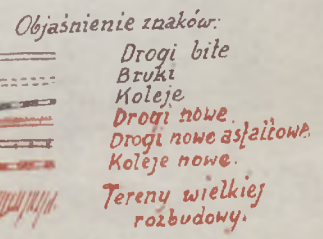 Objaśnienie znaków:
Drogi bite
Bruki
Koleje
Drogi nowe.
Drogi nowe asfaltowe.
Koleje nowe.
Tereny wielkiej
rozbudowy.